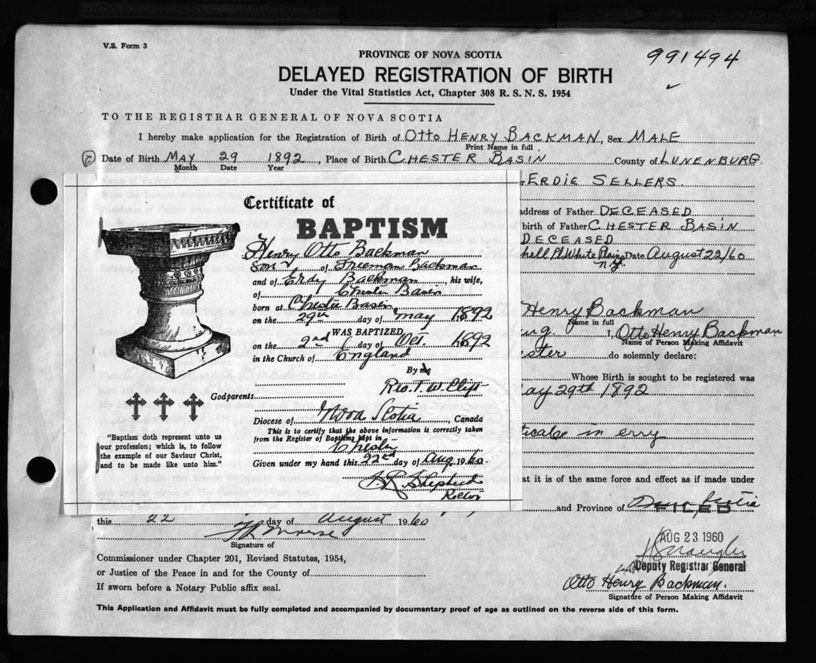 V.S. Form 3
PROVINCE OF NOVA SCOTIA
991494
DELAYED REGISTRATION OF BIRTH
Under the Vital Statistics Act, Chapter 308 R. S. N. S. 1954
TO THE REGISTRAR GENERAL OF NOVA SCOTIA
I hereby make application for the Registration of Birth of OTTO HENRY BACKMAN, Sex MALE
Print Name in full
C Date of Birth MAY 29 1892, Place of Birth CHESTER BASIN County of LUNENBURG
Month Date Year
ERDIE SELLERS.
address of Father DECEASED
birth of Father CHESTER BASIN
DECEASED
Pl White Plains Date August 22/60
N.Y.
Henry Backman
Name in full
I, Otto Henry Backman
Name of Person Making Affidavit
do solemnly declare:
Whose Birth is sought to be registered was
May 29th 1892
in erry
at it is of the same force and effect as if made under
and Province of Nova Scotia
FILED
Certificate of
BAPTISM
Henry Otto Backman
Son of Freeman Backman
and of Erdy Backman, his wife,
of Chester Basin
born at Chester Basin
on the 29th day of May 1892
WAS BAPTIZED
on the 2nd day of Oct. 1892
in the Church of England
By me
Rev. T. W.
Godparents
Diocese of Nova Scotia, Canada
This is to certify that the above information is correctly taken
from the Register of Baptisms kept in
Chester
Given under my hand this 22nd day of Aug. 1960
Shepherd
Rector
"Baptism doth represent unto us
our profession; which is, to follow
the example of our Saviour Christ,
and to be made like unto him."
this 22 day of August 1960
Signature of
Commissioner under Chapter 201, Revised Statutes, 1954,
or Justice of the Peace in and for the County of
If sworn before a Notary Public affix seal.
AUG 23 1960
Deputy Registrar General
Otto Henry Backman.
Signature of Person Making Affidavit
This Application and Affidavit must be fully completed and accompanied by documentary proof of age as outlined on the reverse side of this form.